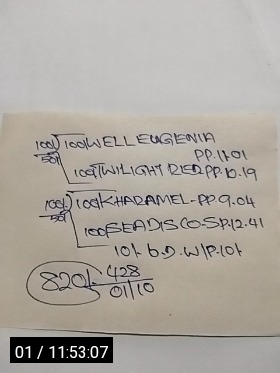 100/- 100/- WELL EUGENIA
50/- PP.11.01
100/- TWILIGHT RED PP.10.19
100/- 100/- KHARAMEL - PP 9.04
50/- 100/- SEADISCO - SP.12.41
10/- b.D. W/P.10/-
820/- 428
01/10
01 / 11:53:07